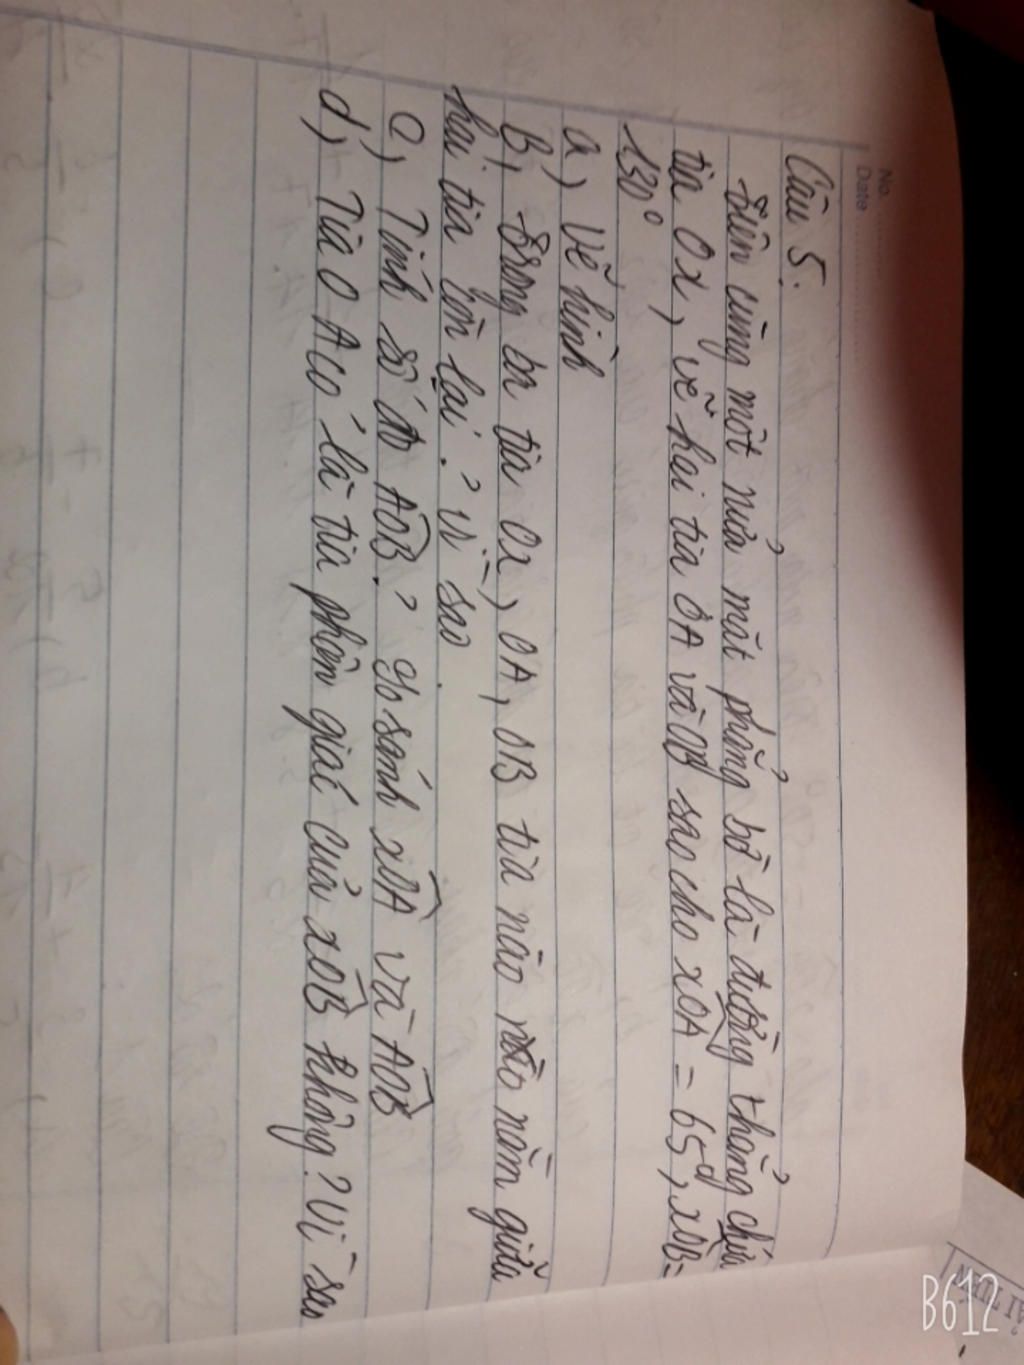 No.
Date
Câu 5:
trên cùng một nửa mặt phẳng bờ là đường thẳng chứa
tia Ox, vẽ hai tia OA và OB sao cho xOA = 65°, xOB =
130°
a, Vẽ hình
b, trong ba tia Ox, OA, OB tia nào nằm giữa
hai tia còn lại? vì sao.
c, Tính số đo AOB? So sánh xOA và AOB
d, Tia OA có là tia phân giác của xOB không? Vì sao
B612